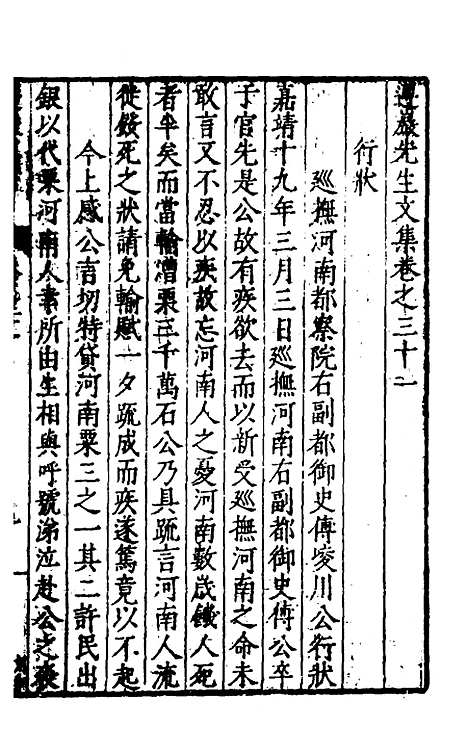 遵巖先生文集卷之三十一
行狀
巡撫河南都察院右副都御史傅凌川公行狀
嘉靖十九年三月三日巡撫河南右副都御史傅公卒
于官先是公故有疾欲去而以新受巡撫河南之命未
敢言又不忍以疾故忘河南人之憂河南數歲饑人死
者半矣而當輸漕粟三千萬石公乃具疏言河南人流
徙殺死之狀請免輸賦一夕疏成而疾遂篤竟以不起
今上感公言切特貸河南粟三之一其二許民出
銀以代粟河南人素所由生相與呼號涕泣赴公之喪